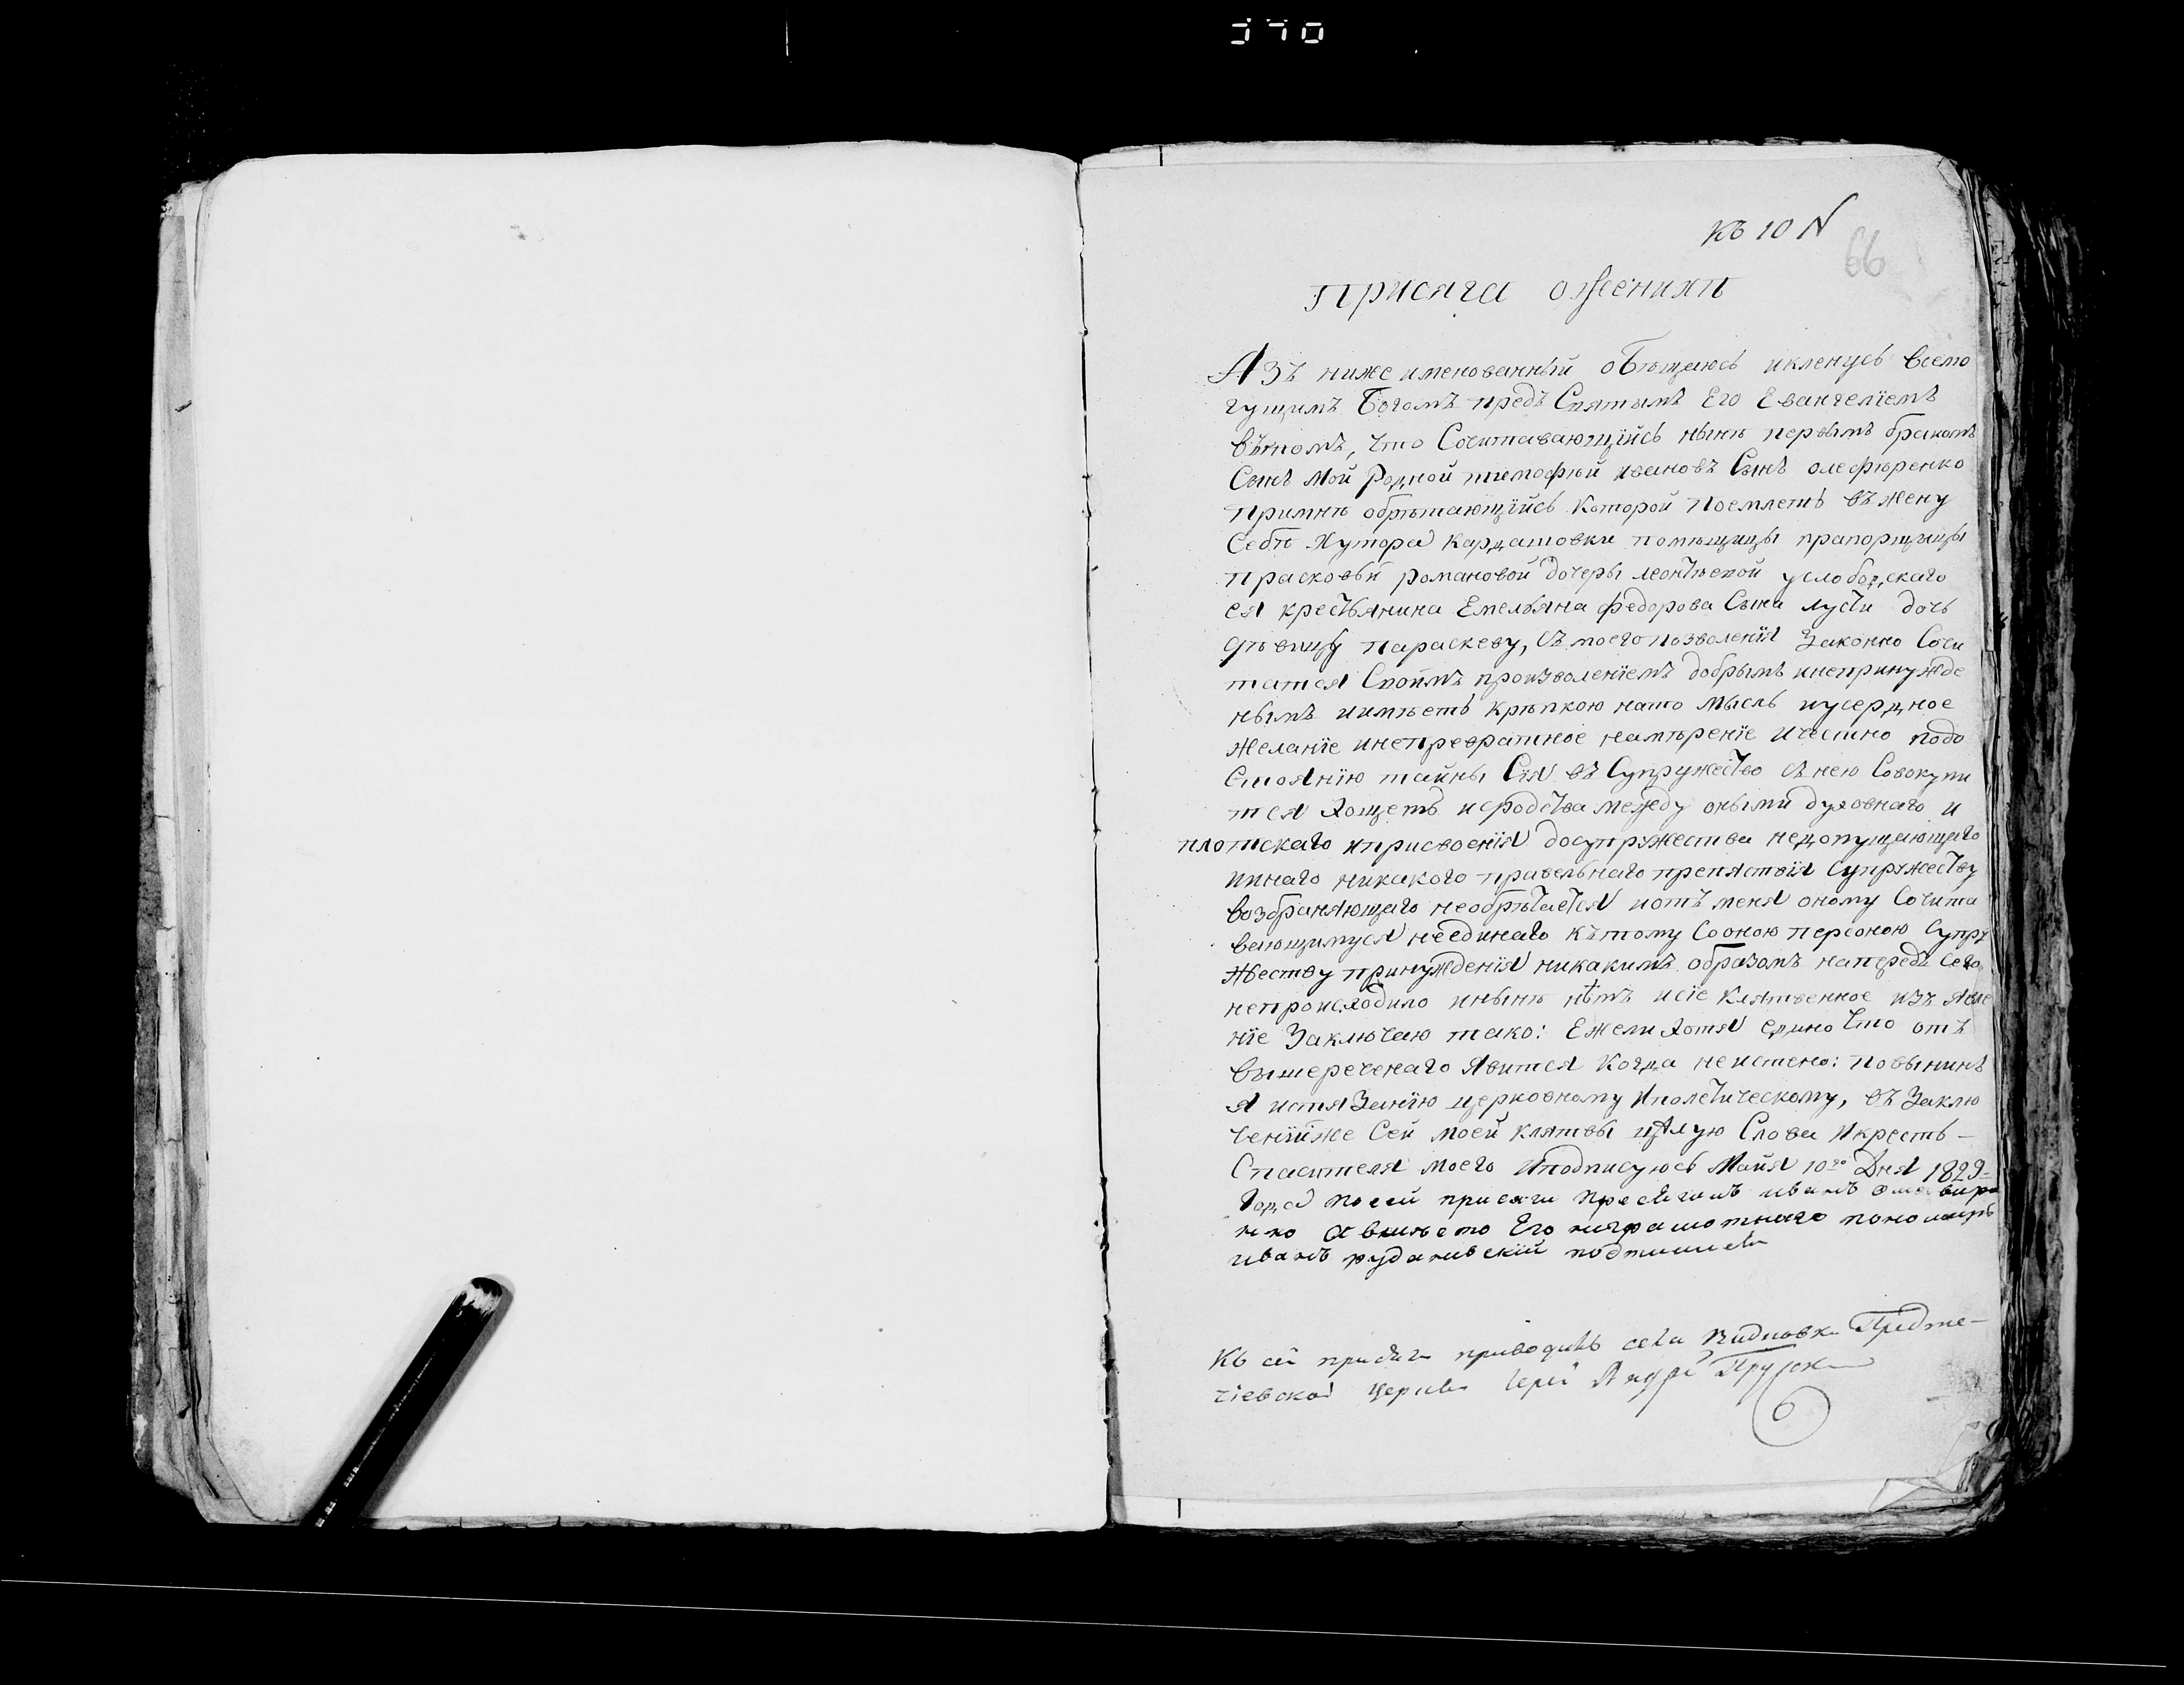 370
Къ 10 N
66
Присяга ожениху
Азъ ниже именованный обѣщаюсь икленусь всемо
гущимъ Богомъ предъ Святымъ Его Евангелїемъ
вътомъ, что Сочитавающїйсь нынѣ первымъ бракомъ
Сынъ мой родной тимофѣй ивановъ Сынъ олефиренко
примнѣ обрѣтающїйсь которой поемлетъ въ жену
Себѣ Хутора кардашовки помѣщицы прапорщицы
прасковьи романовой дочеры леонтьевой услободскаго
ея крестьянина Емельяна федорова Сына лусты дочь
дѣвицу параскеву, съ моего позволенїя Законно Сочи
татся Своимъ произволенїемъ добрымъ инепринужде
нымъ иимѣетъ крѣпкою нато мысль иусердное
желанїе инепревратное намѣренїе ичестно подо
Стоянїю тайны Сїя въ Супружество съ нею Совокупи
тся хощетъ иродства между оными духовнаго и
плотскаго иприсвоенїя досупружества недопущающаго
иинаго никакого правельнаго препятствїя Супружеству
возбраняющаго необрѣтается иотъ меня оному Сочита
вающимуся неединаго кътому Сооною персоною Супру
жеству принужденїя никакимъ образомъ напередъ Сего
непроисходило инынѣ нѣтъ исїе клятвенное изъ явле
нїе Заключаю тако: Ежели хотя едино что отъ
вышереченаго явится когда неистено: повынинъ
я истязанїю церковному иполетическому, въ Заклю
ченїиже Сей моей клятвы цѣлую Слова икресть-
Спасителя моего иподписуюсь Майя 10го Дня 1829-
Года посей присяги иванъ
нко а вмѣсто Его неграмотнаго пономаръ
иванъ рудановскїй подписалъ
Къ сей присяги приводилъ села Предте-
чїевской церкви Іерей Андрей